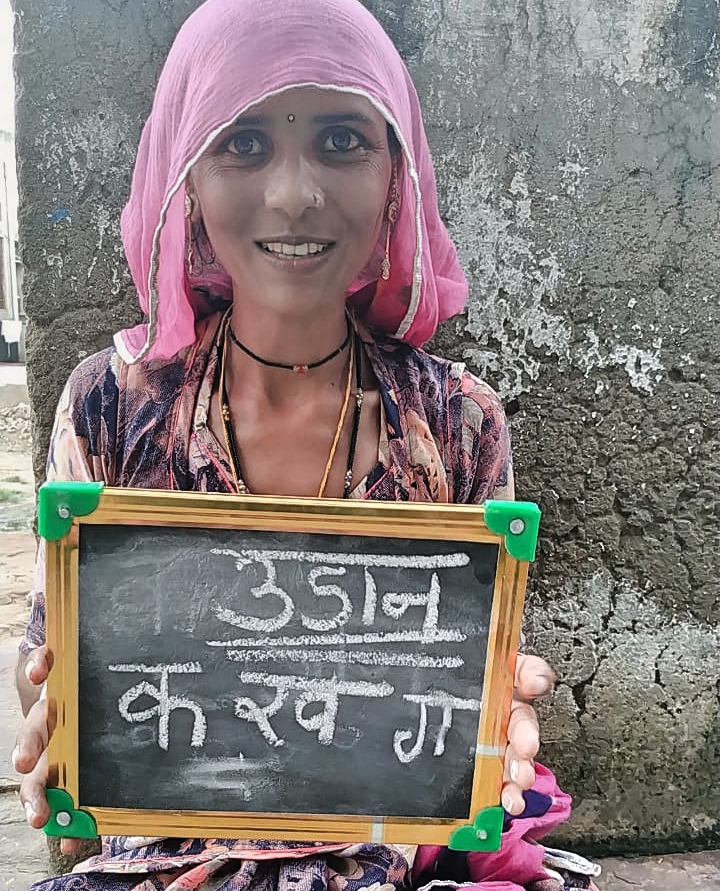 उडान
क ख ग